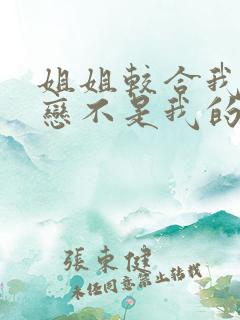 姐姐較合我
戀不是我的
張東健
未经同意禁止转载